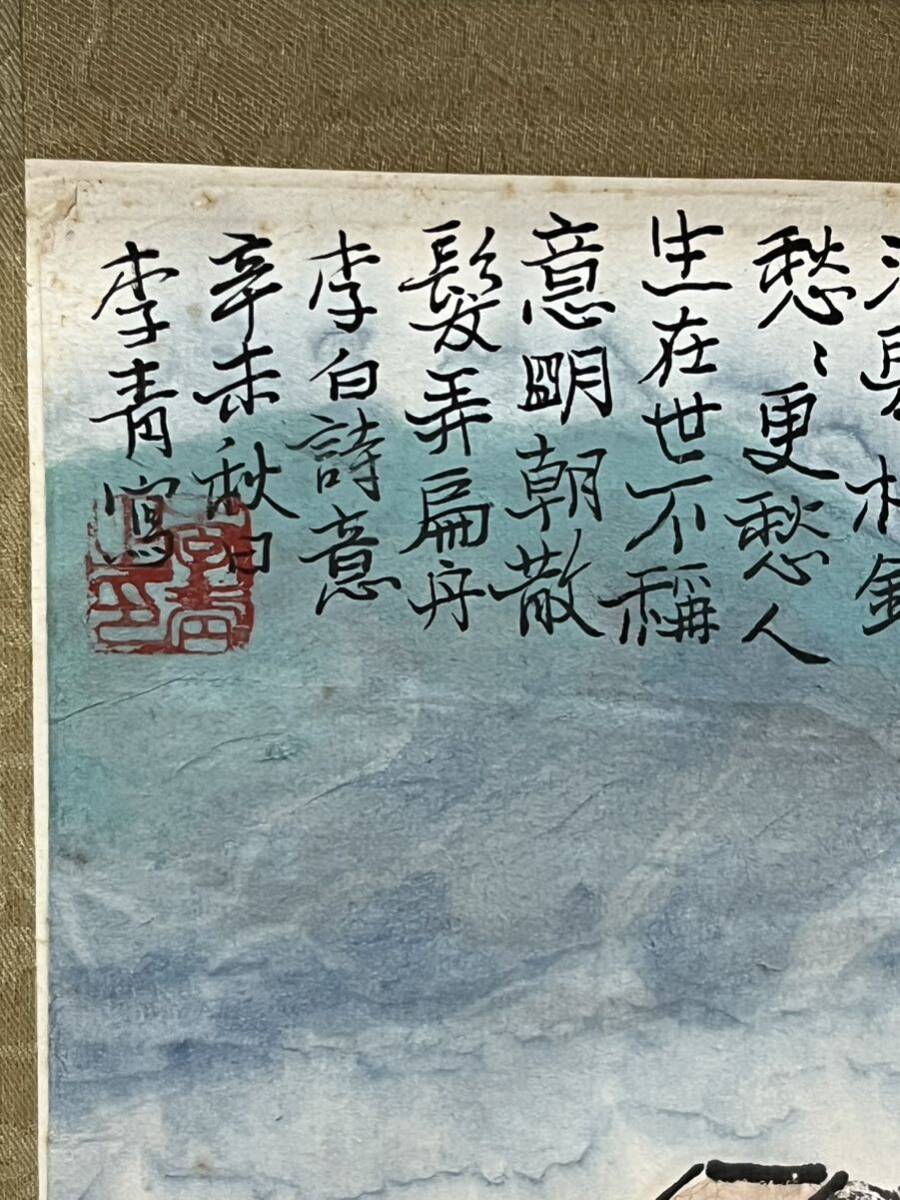 愁〻更愁人
生在世不稱
意明朝散
髮弄扁舟
李白詩意
辛未秋日
李青寫